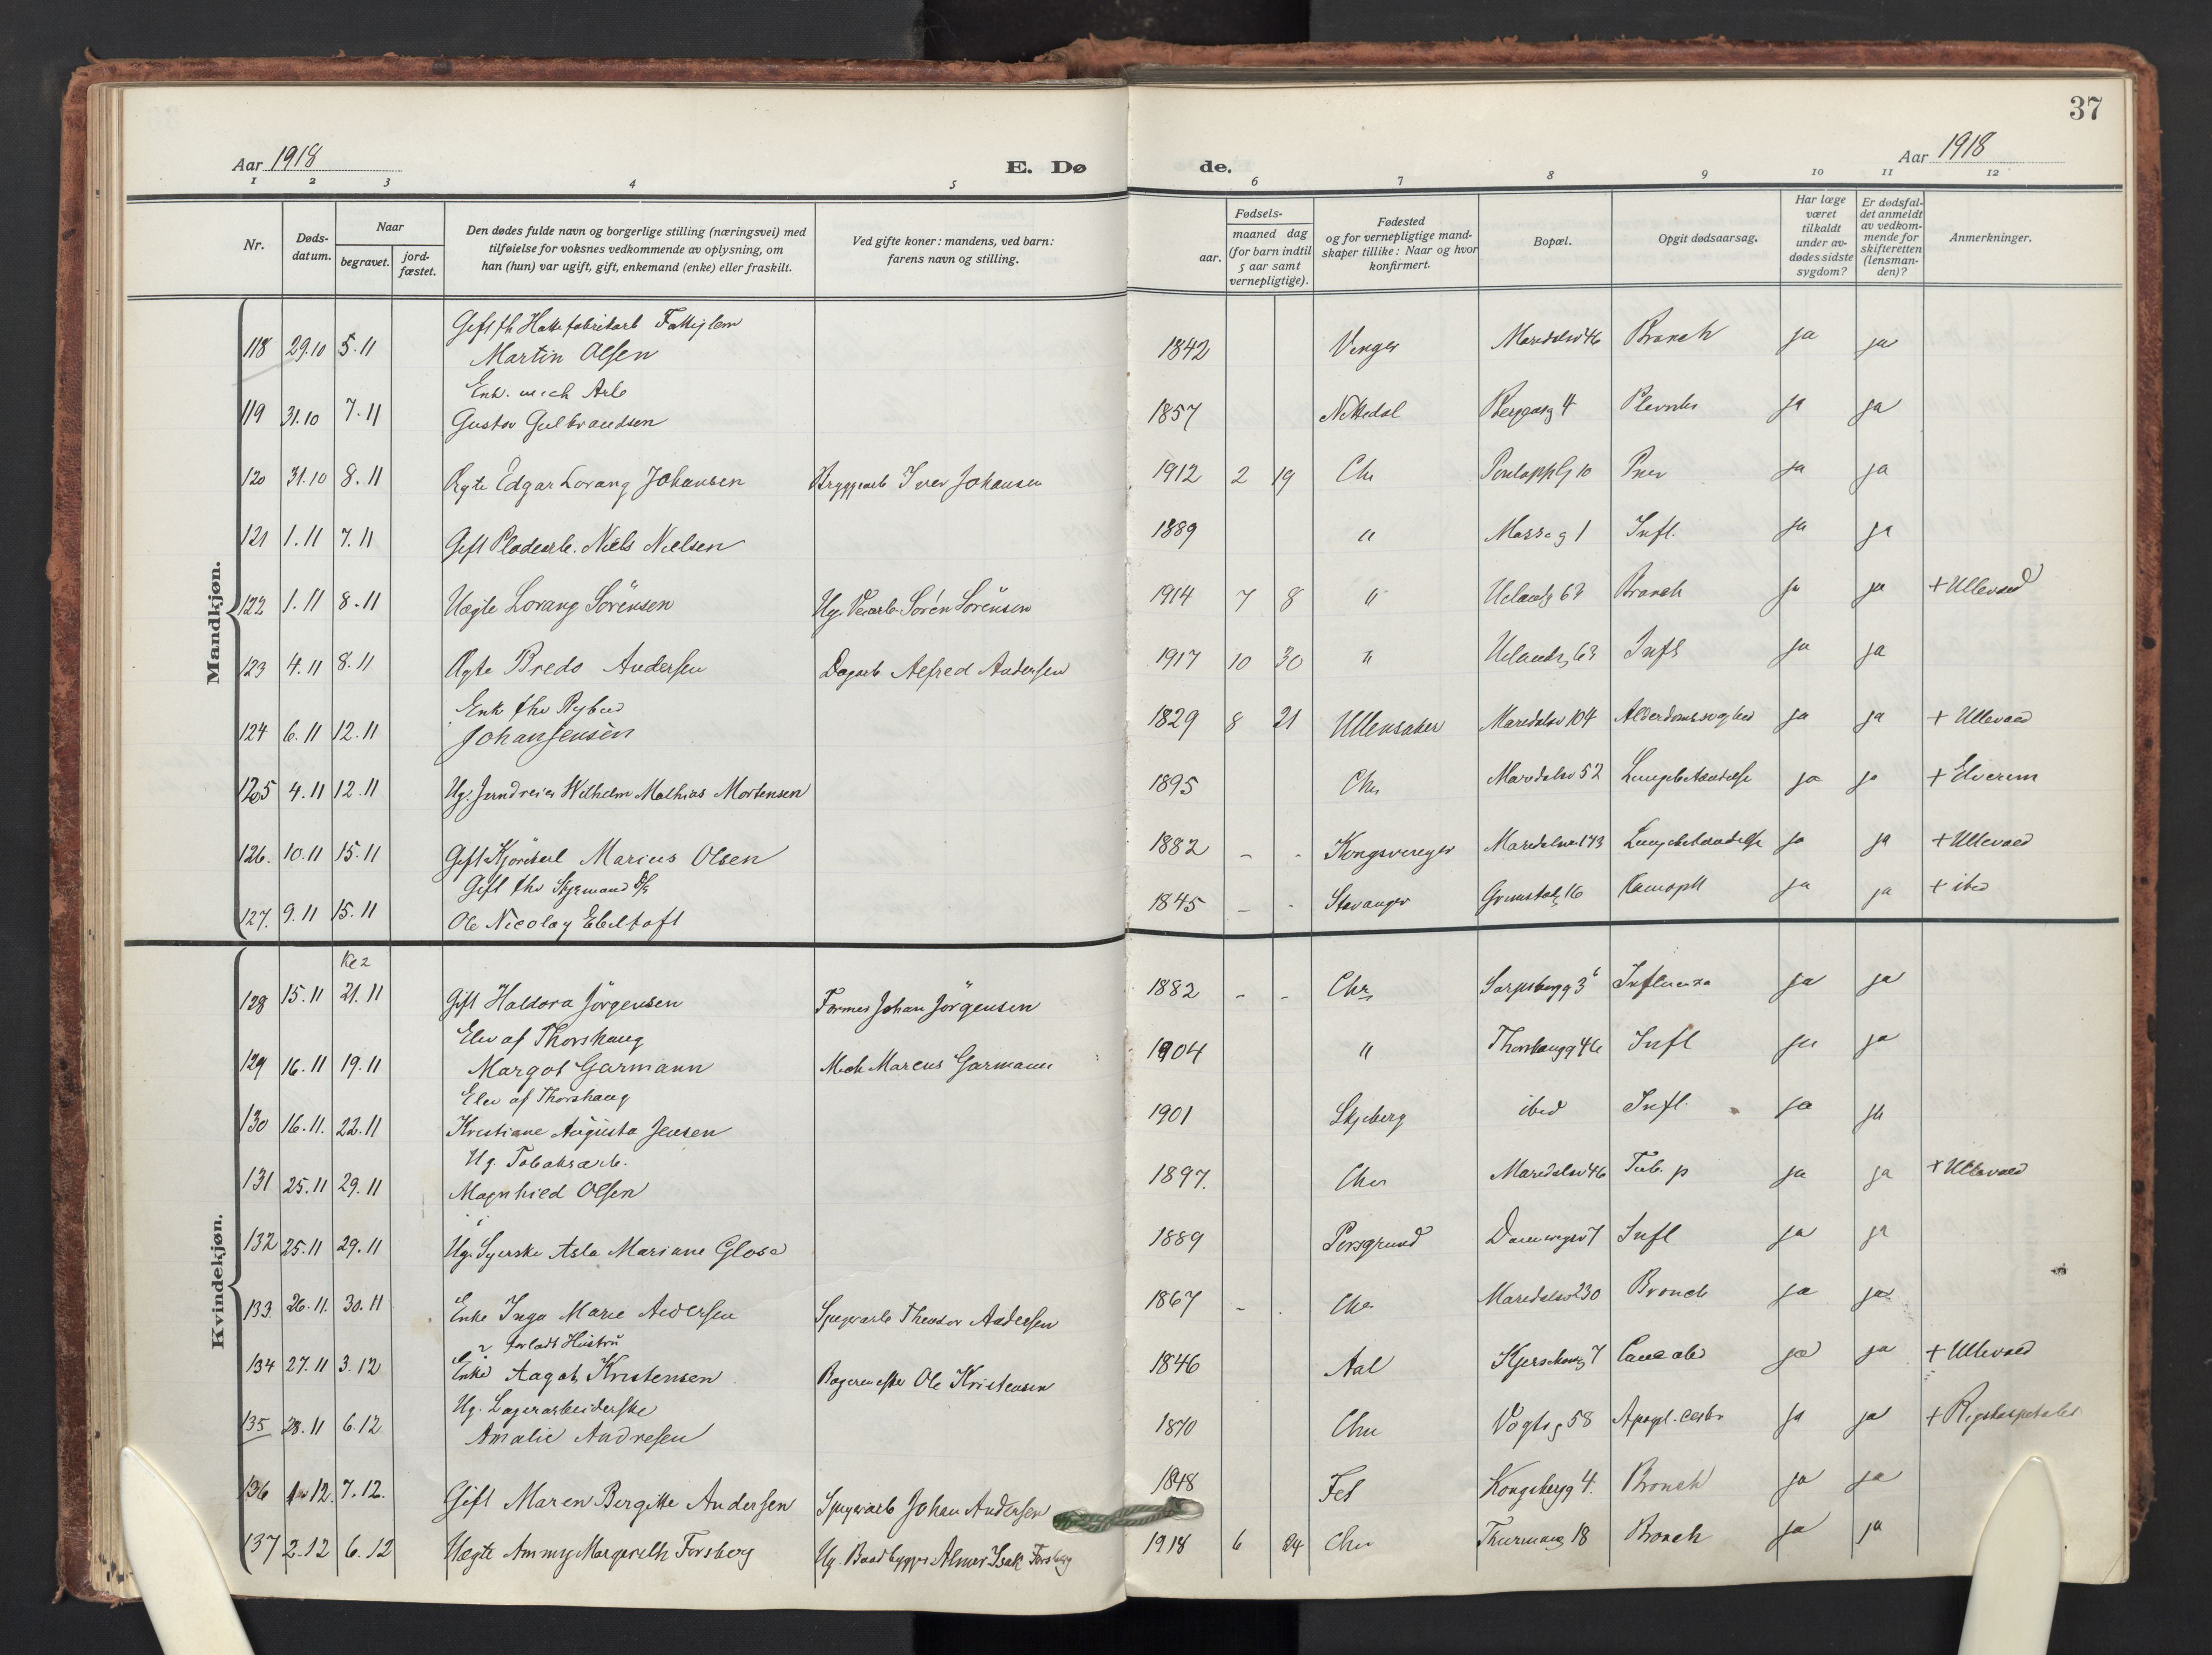 37
Aar 1918
E. Dø
de.
Aar 1918
1 2 3 4 5 6 7 8 9 10 11 12
Nr.
Døds-
datum.
Naar
begravet.
jord-
fæstet.
Den dødes fulde navn og borgerlige stilling (næringsvei) med
tilføielse for voksnes vedkommende av oplysning, om
han (hun) var ugift, gift, enkemand (enke) eller fraskilt.
Ved gifte koner: mandens, ved barn:
farens navn og stilling.
Fødsels-
aar.
maaned dag
(for barn indtil
5 aar samt
vernepligtige).
Fødested
og for vernepligtige mand-
skaper tillike: Naar og hvor
konfirmert.
Bopæl.
Opgit dødsaarsag.
Har læge
været
tilkaldt
under av-
dødes sidste
sygdom?
Er dødsfal-
det anmeldt
av vedkom-
mende for
skifteretten
(lensman-
den)?
Anmerkninger.
Mandkjøn.
Gift fh Hattefabrikarb Fattiglem
118 29.10 5.11 Martin Olsen 1842 Maridalsv 46 Bronch ja ja
Enk. mech Arb
119 31.10 7.11 Gustav Gulbrandsen 1857 Nittedal 4 ja ja
120 31.10 8.11 Ægte Edgar Lorang Johansen Bryggearb Iver Johansen 1912 2 19 Chr 10 Pneu ja ja
121 1.11 7.11 Gift Pladearb. Niels Nielsen 1889 " 1 Infl. ja ja
122 1.11 8.11 Uægte Lorang Sörensen Ug. Sören Sörensen 1914 7 8 " Uelandsg 63 Bronch ja ja + Ullevaal
123 4.11 8.11 Ægte Bredo Andersen Dagarb Alfred Andersen 1917 10 30 " Uelandsg 63 Infl ja ja
Enk fhv
124 6.11 12.11 Johan Jensen 1829 8 21 Ullensaker Maridalsv 104 Alderdomssvaghed ja ja + Ullevaal
125 4.11 12.11 Ug. Jerndreier Wilhelm Mathias Mortensen 1895 Chr Maridalsv 52 Lungebetændelse ja ja + Elverum
126. 10.11 15.11 Gift Marius Olsen 1882 - - Kongsvinger Maridalsv 173 Lungebetændelse ja ja + Ullevaal
Gift fhv Styrmand
127. 9.11 15.11 Ole Nicolay Ebeltoft 1845 - - Stavanger Grimstadg 16 ja ja + ibid
Kvindekjøn.
Kl 2
128 15.11 21.11 Gift Haldora Jörgensen Former Johan Jörgensen 1882 - - Chr Sarpsborgg 3 Influenza ja ja
Elev af Thorshaug
129 16.11 19.11 Margot Garmann Mek Marcus Garmann 1904 " Thorshaugg 46 Infl ja ja
Elev af Thorshaug
130 16.11. 22.11 Kristiane Augusta Jensen 1901 Skjeberg ibid Infl. ja ja
Ug. Tobaksarb.
131 25.11 29.11 Magnhild Olsen 1897. Chr Maridalsv 46 Tub. p ja ja + Ullevaal
132 25.11 29.11 Ug. Syerske Asla Mariane Glosa 1889 Porsgrund 7 Infl ja ja
133 26.11. 30.11 Enke Inga Marie Andersen Spigerarb Theodor Andersen 1867 - . Chr Maridalsv 230 Bronch ja ja
? forladt Hustru
134 27.11 3.12 Enke Aagot Kristensen Bagermester Ole Kristensen 1846 Aal 7 ja ja + Ullevaal
Ug. Lagerarbeiderske
135 28.11 6.12 Amalie Andresen 1870 Chr Vogtsg 58 Apopl. cerebr ja ja + Rigshospitalet
136 12. 7.12. Gift Maren Birgitte Andersen Spigerarb Johan Andersen 1848 Fet Kongsbergg 4. Bronch ja ja
137 2.12 6.12 Uægte Ammy Margareth Forsberg Ug. Baadbygger Almer Isak Forsberg 1918 6 24 Chr Thurmannsg 18 Bronch ja ja